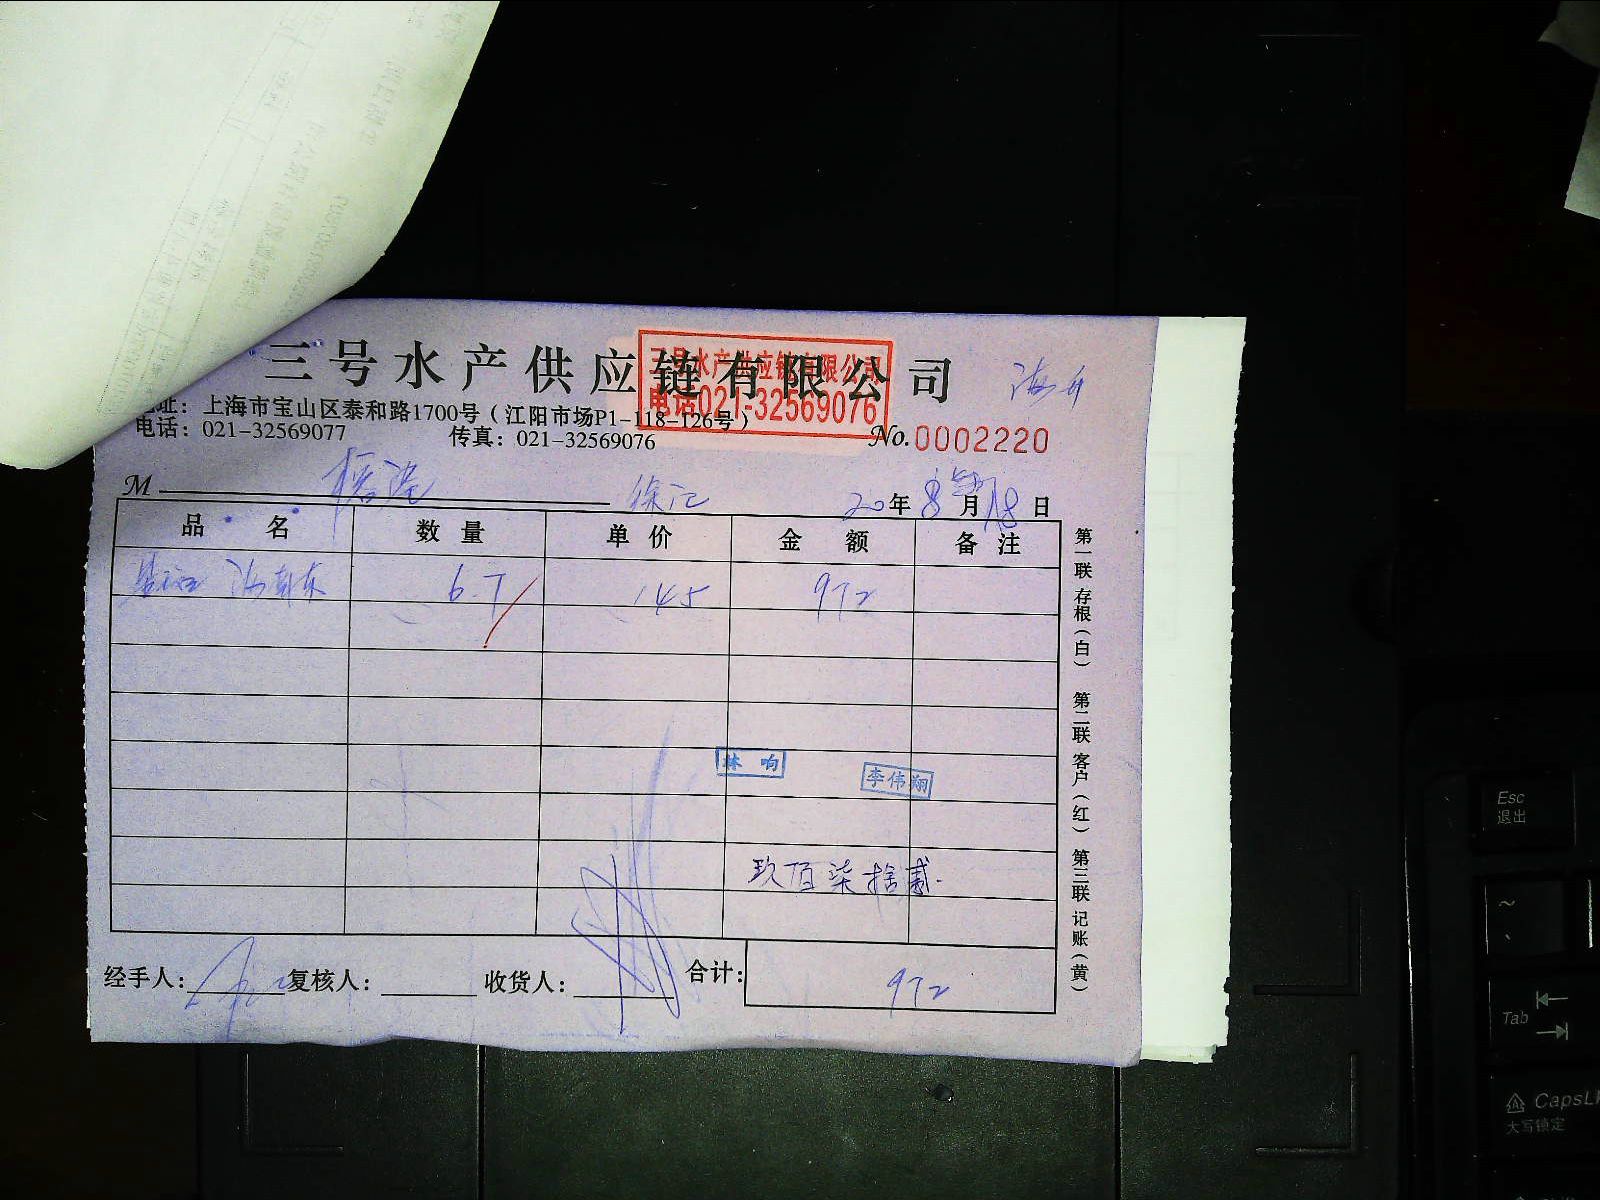 三号水产供应链有限公司
三号水产供应链有限公司
电话021-32569076
地址：上海市宝山区泰和路1700号（江阳市场P1-118-126号）
电话：021-32569077 传真：021-32569076
No.0002220
M 徐汇 20年8月18日
品名 数量 单价 金额 备注
6.7 145 972
林响
李伟翔
玖佰柒拾贰
经手人： 复核人： 收货人： 合计： 972
第一联 存根（白） 第二联 客户（红） 第三联 记账（黄）
Esc
退出
~
Tab
CapsLk
大写锁定